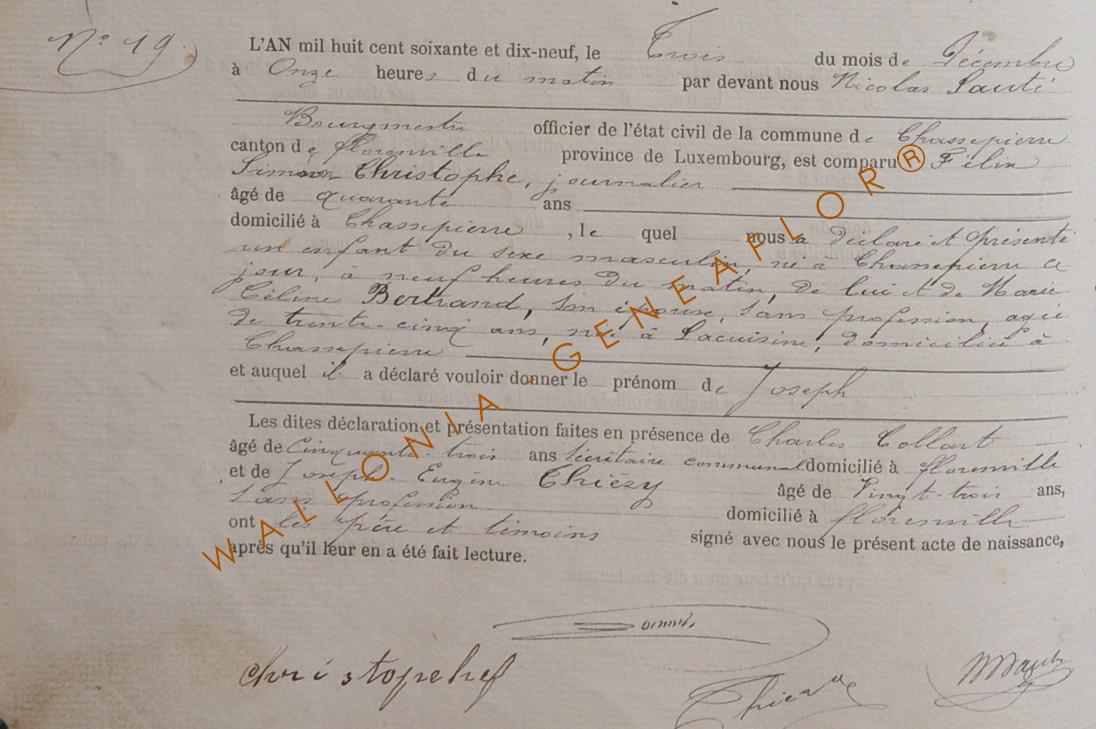 N° 19.
L'AN mil huit cent soixante et dix-neuf, le Trois du mois de Décembre
à Onze heures du matin par devant nous Nicolas
Bourgmestre officier de l'état civil de la commune de Chassepierre
canton de florenville province de Luxembourg, est comparu Félix
Simon Christophe, journalier
âgé de quarante ans
domicilié à Chassepierre, le quel nous a déclaré et présenté
un enfant du sexe masculin, né à Chassepierre ce
jour, à neuf heures du matin, de lui et de Marie
Céline Bertrand, son épouse, sans profession, agée
de trente-cinq ans, née à Lacuisine, domiciliée à
Chassepierre
et auquel il a déclaré vouloir donner le prénom de Joseph
Les dites déclaration et présentation faites en présence de Charles Collart
âgé de Cinquante-trois ans Sécrétaire communal domicilié à florenville
et de Joseph-Eugène Thiéry âgé de Vingt-trois ans,
Sans profession domicilié à florenville
ont les père et témoins signé avec nous le présent acte de naissance,
après qu'il leur en a été fait lecture.
christophe f
WALLONIA - GENEAFLOR®